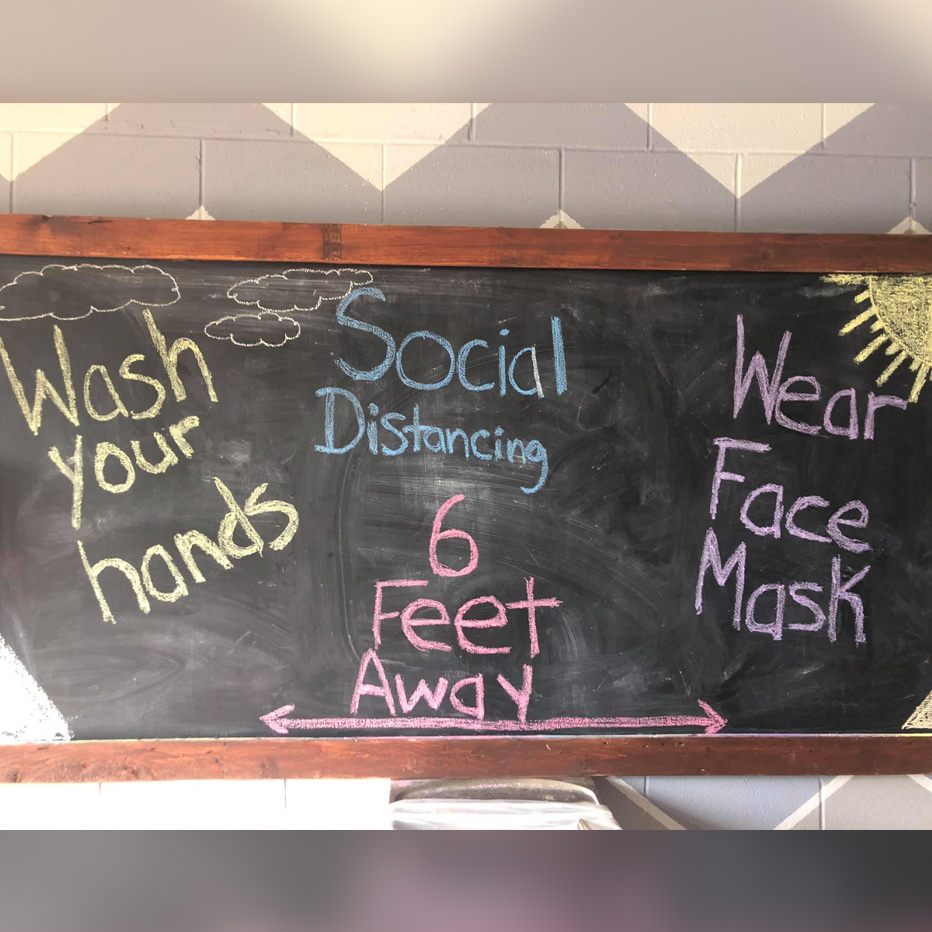 Wash
your
hands
Social
Distancing
6
Feet
Away
Wear
Face
Mask